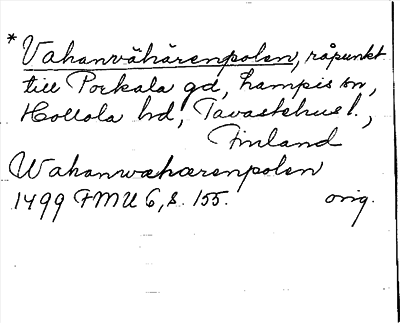 *Vahanvähärenpolen, råpunkt
till Porkala gd, Lampis sn,
Hollola hd, Tavastehus l.,
Finland
Wahanwæhærenpolen
1499 FMU 6, s. 155. orig.